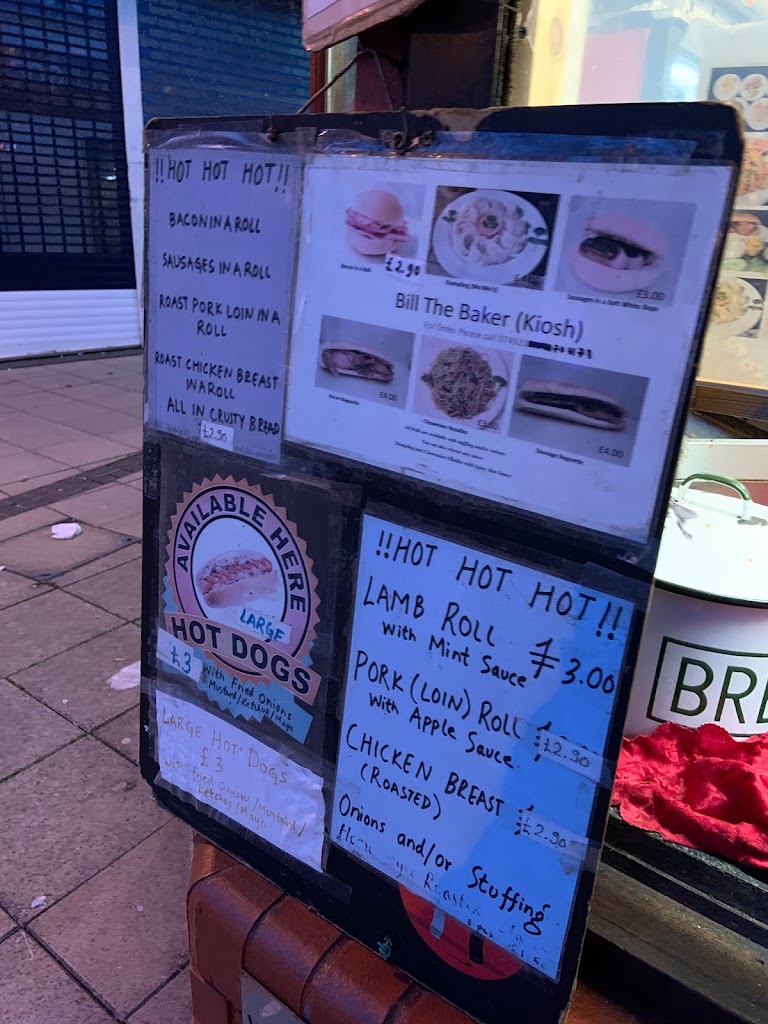 !!HOT HOT HOT!!
BACON IN A ROLL
SAUSAGES IN A ROLL
ROAST PORK LOIN IN A
ROLL
ROAST CHICKEN BREAST
IN A ROLL
ALL IN CRUSTY BREAD
£2.90
Bacon in a Roll
£2.90
Dumpling (Mo:Mo's)
Sausages in a Soft White Baps
£3.00
Bill The Baker (Kiosh)
For Order Please call
£4.00
Chowmein Noodles
£4.00
Bacon Baguette
Sausage Baguette
AVAILABLE HERE
LARGE
HOT DOGS
£3
With Fried Onions
Mustard/Ketchup/Mayo
LARGE HOT DOGS
£3
with Fried Onions/Mustard/
Ketchup/Mayo
!!HOT HOT HOT!!
LAMB ROLL £3.00
With Mint Sauce
PORK (LOIN) ROLL £2.90
With Apple Sauce
CHICKEN BREAST £2.90
(ROASTED)
Onions and/or Stuffing
BRE